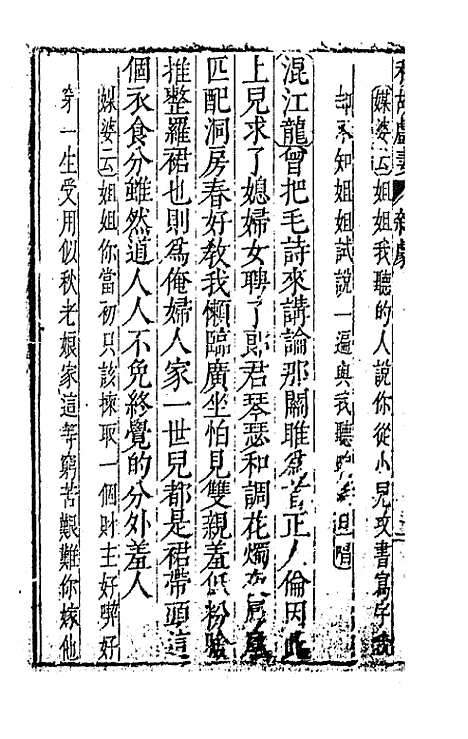 秋胡戲妻 雜劇
媒婆云姐姐我聽的人說你從小兒攻書寫字我
却不知姐姐試說一遍與我聽咱正旦唱
混江龍曾把毛詩來講論那關雎為首正人倫因此
上兒求了媳婦女聘了郎君琴瑟和調花燭
匹配洞房春好教我懶臨廣坐怕見雙親羞低粉臉
推整羅裙也則為俺婦人家一世兒都是裙帶頭這
個衣食分雖然道人人不免終覺的分外羞人
媒婆云姐姐你當初只該揀取一個財主好喫好
穿一生受用似秋老娘家這等窮苦艱難你嫁他